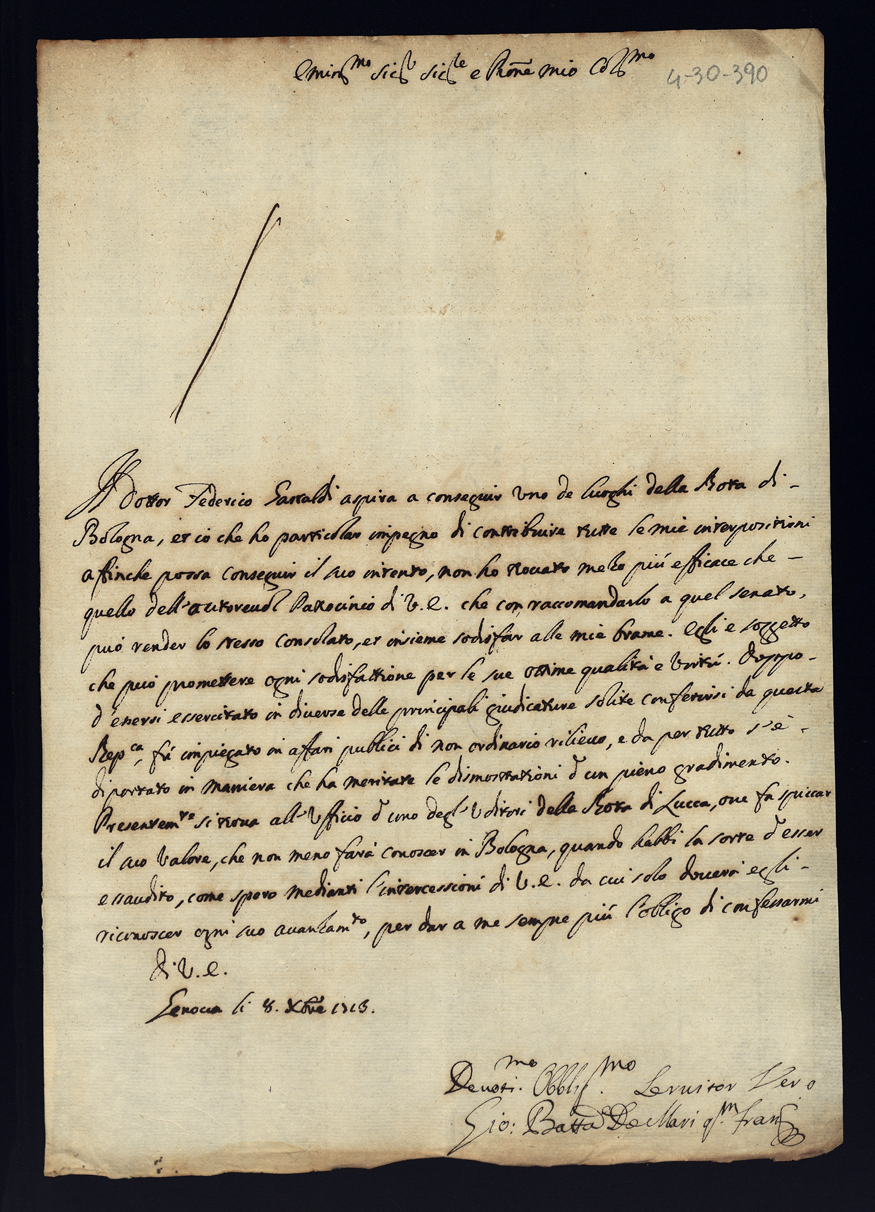 Emin.mo Sig.r Sig.re e Prone mio Col.mo
4-30-390
Il Dottor Federico aspira a conseguir uno de luoghi della Rota di
Bologna, et io che ho particolar impegno di contribuire tutte le mie interpositioni
affinche possa conseguir il suo intento, non ho trovato mezo più efficace che
quello dell'autorevol Patrocinio di V.E. che con raccomandarlo a quel senato,
può render lo stesso consolato, et insieme sodisfar alle mie brame. Egli e soggetto
che può promettere ogni sodisfattione per le sue ottime qualità e virtù. Doppo
d'essersi essercitato in diverse delle principali giudicature solite conferirsi da questa
Rep.ca, fù impiegato in affari publici di non ordinario rilievo, e da per tutto s'è
diportato in maniera che ha meritate le dimostrationi d'un pieno gradimento.
Presentem.te si trova all'Ufficio d'uno degl'Uditori della Rota di Lucca, ove fa spiccar
il suo valore, che non meno farà conoscer in Bologna, quando habbi la sorte d'esser
essaudito, come spero medianti l'intercessioni di V.E. da cui solo doverà egli
riconoscer ogni suo avanzam.to, per dar a me sempre più l'obligo di confessarmi
di V.E.
Genova li 8. Xbre 1713.
Devoti.mo Obblig.mo Servitor Vero
Gio: Batta De Mari q.m Fran